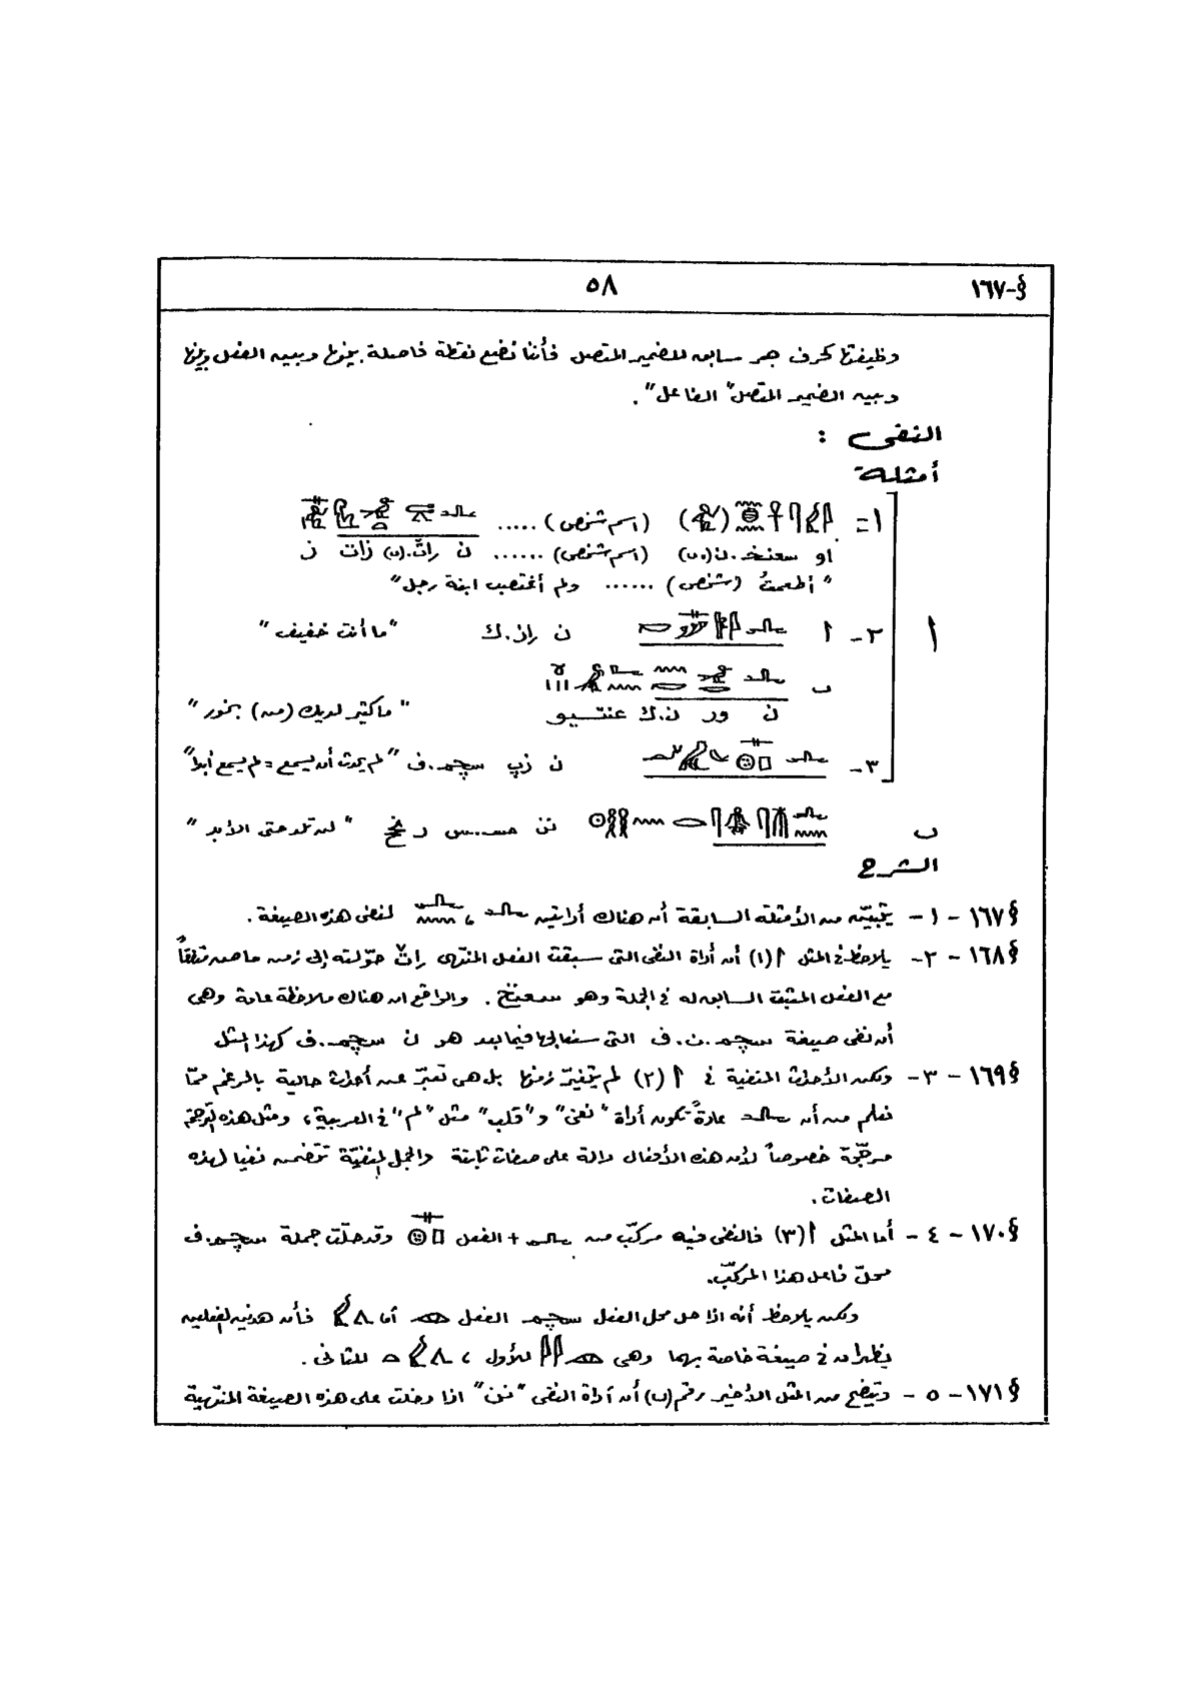 §-١٦٧
٥٨
وظيفتها كحرف جر سابق للضمير المتصل فأننا نضع نقطة فاصلة بينها وبين الفعل وبينها
وبين الضمير المتصل "الفاعل".
النفى :
أمثلة
١= (اسم شخص) .....
او سعنخ.ن(ى) (اسم شخص) ...... ن زات ن
"أطعمتُ (شخص) ...... ولم أغتصب ابنة رجل"
أ
٢- أ ن .ك "ما أنت خفيف"
ب
ن ور ن.ك عنتيو "ما كثير لديك (من) بخور"
٣- ن زپ سچم.ف "لم يحدث أن يسمع = لم يسمع أبدا"
ب نن مس.س ر نحح "لن تلد حتى الأبد"
الشرح
§١٦٧ - ١- يتبيّن من الأمثلة السابقة أن هناك أداتين ، لنفى هذه الصيغة.
§١٦٨ - ٢- يلاحظ فى المثل أ(١) أن أداة النفى التى سبقت الفعل المنتهى حوّلته إلى زمن ماضٍ متفقاً
مع الفعل المثبت السابق له فى الجملة وهو سعنخ. والواقع ان هناك ملاحظة عامة وهى
أن نفى صيغة سچم.ن.ف التى سنعالجها فيما بعد هو ن سچم.ف كهذا المثل
§١٦٩ - ٣- ولكن الأحداث المنفية فى أ (٢) لم يتغيّر زمنها بل هى تعبّر عن أحداث حالية بالرغم ممّا
نعلم من أن عادةً تكون أداة "نفى" و"قلب" مثل "لم" فى العربية، ومثل هذه الترجمة
مرجّحة خصوصاً لأن هذه الأفعال دالة على صفات ثابتة والجمل المنفيّة تتضمن نفيا لهذه
الصفات.
§١٧٠ - ٤ - أما المثل أ(٣) فالنفى فيه مركّب من + الفعل وقد حلّت جملة سچم.ف
محلّ فاعل هذا المركّب.
ولكن يلاحظ أنه اذا حل محل الفعل سچم الفعل أما فأن هذين الفعلين
يظهران فى صيغة خاصة بهما وهى للأول ، للثانى.
§١٧١ - ٥ - ويتضح من المثل الأخير رقم (ب) أن أداة النفى "نن" اذا دخلت على هذه الصيغة المنتهية